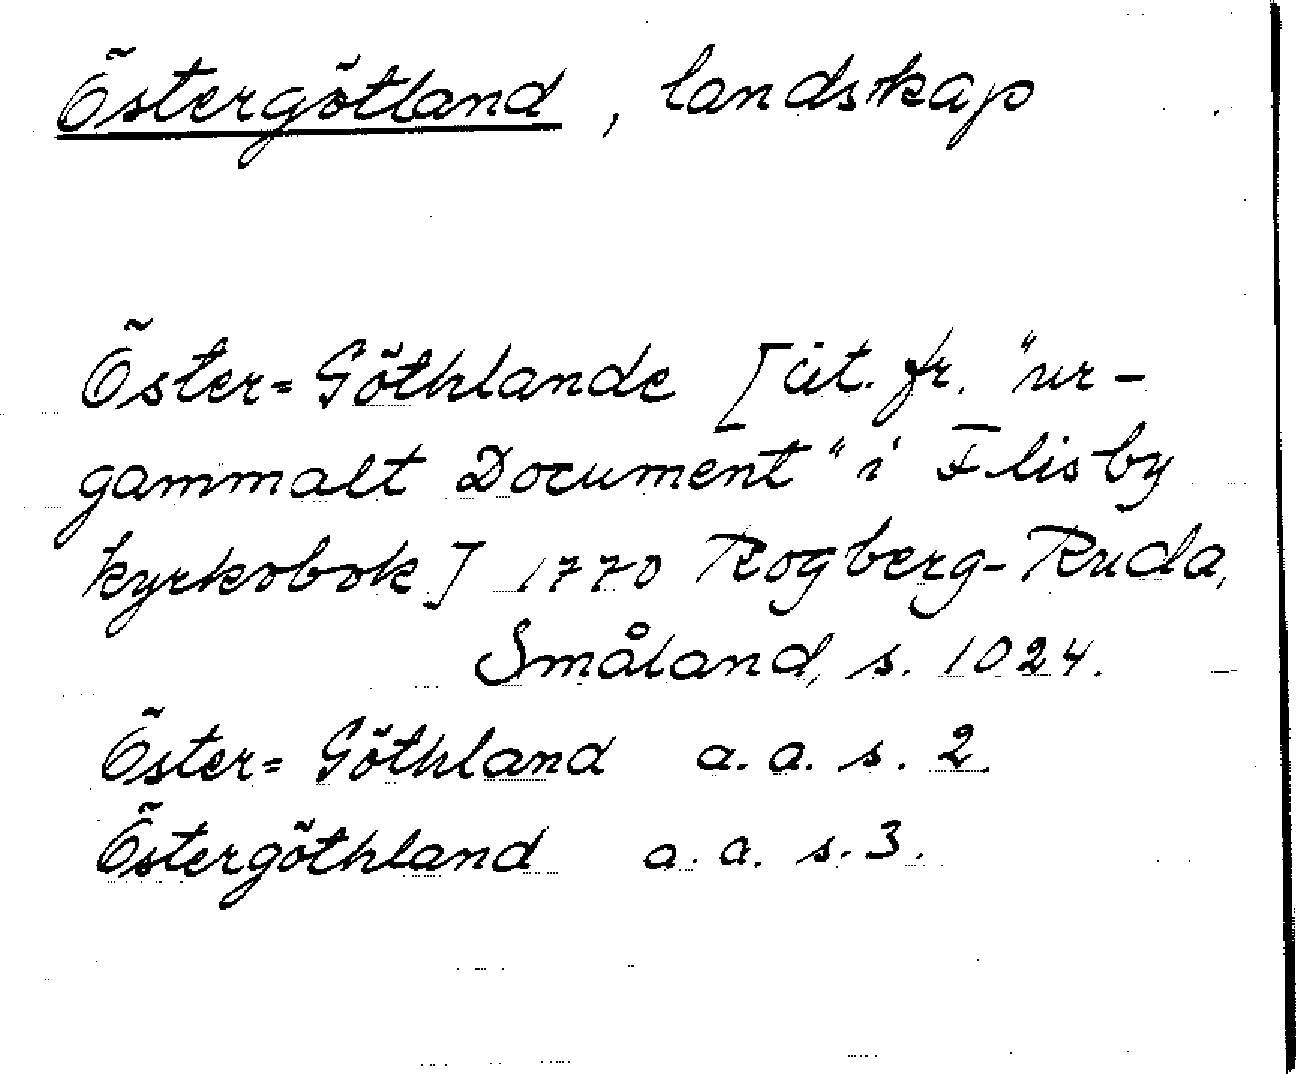 Östergötland, landskap
Öster=Göthlande [cit. fr. "ur-
gammalt Document" i Flisby
kyrkobok] 1770 Rogberg-Ruda,
Småland, s. 1024.
Öster=Göthland a.a. s. 2.
Östergöthland a.a. s. 3.